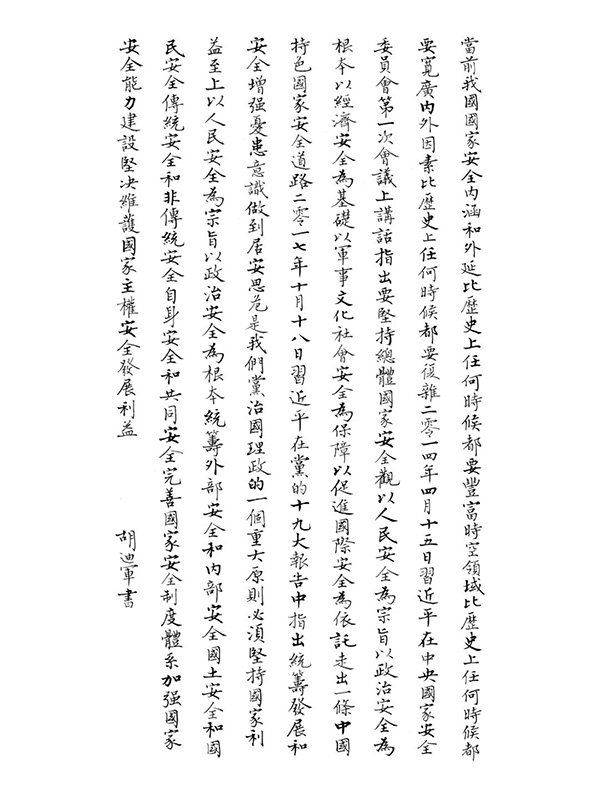 當前我國國家安全內涵和外延比歷史上任何時候都要豐富時空領域比歷史上任何時候都
要寬廣內外因素比歷史上任何時候都要復雜二零一四年四月十五日習近平在中央國家安全
委員會第一次會議上講話指出要堅持總體國家安全觀以人民安全為宗旨以政治安全為
根本以經濟安全為基礎以軍事文化社會安全為保障以促進國際安全為依託走出一條中國
特色國家安全道路二零一七年十月十八日習近平在黨的十九大報告中指出統籌發展和
安全增强憂患意識做到居安思危是我們黨治國理政的一個重大原則必須堅持國家利
益至上以人民安全為宗旨以政治安全為根本統籌外部安全和內部安全國土安全和國
民安全傳統安全和非傳統安全自身安全和共同安全完善國家安全制度體系加强國家
安全能力建設堅决維護國家主權安全發展利益
胡迪軍書